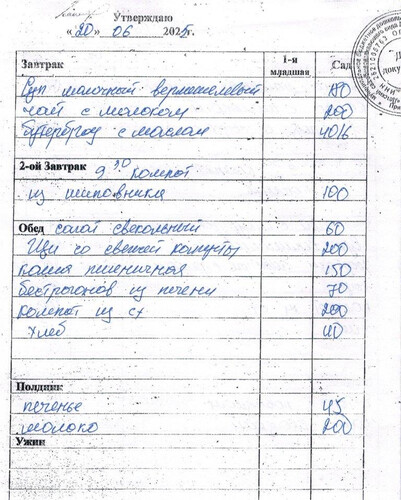 Утверждаю
«20» 06 2025г.
Завтрак 1-я младшая Сад
Суп молочный вермишелевый 180
чай с молоком 200
бутерброд с маслом 40/6
2-ой Завтрак 9 30 компот
из шиповника 100
Обед салат свекольный 60
Щи со свежей капусты 200
каша пшеничная 150
бестрогонов из печени 70
компот из сх 200
хлеб 40
Полдник
печенье 45
молоко 200
Ужин